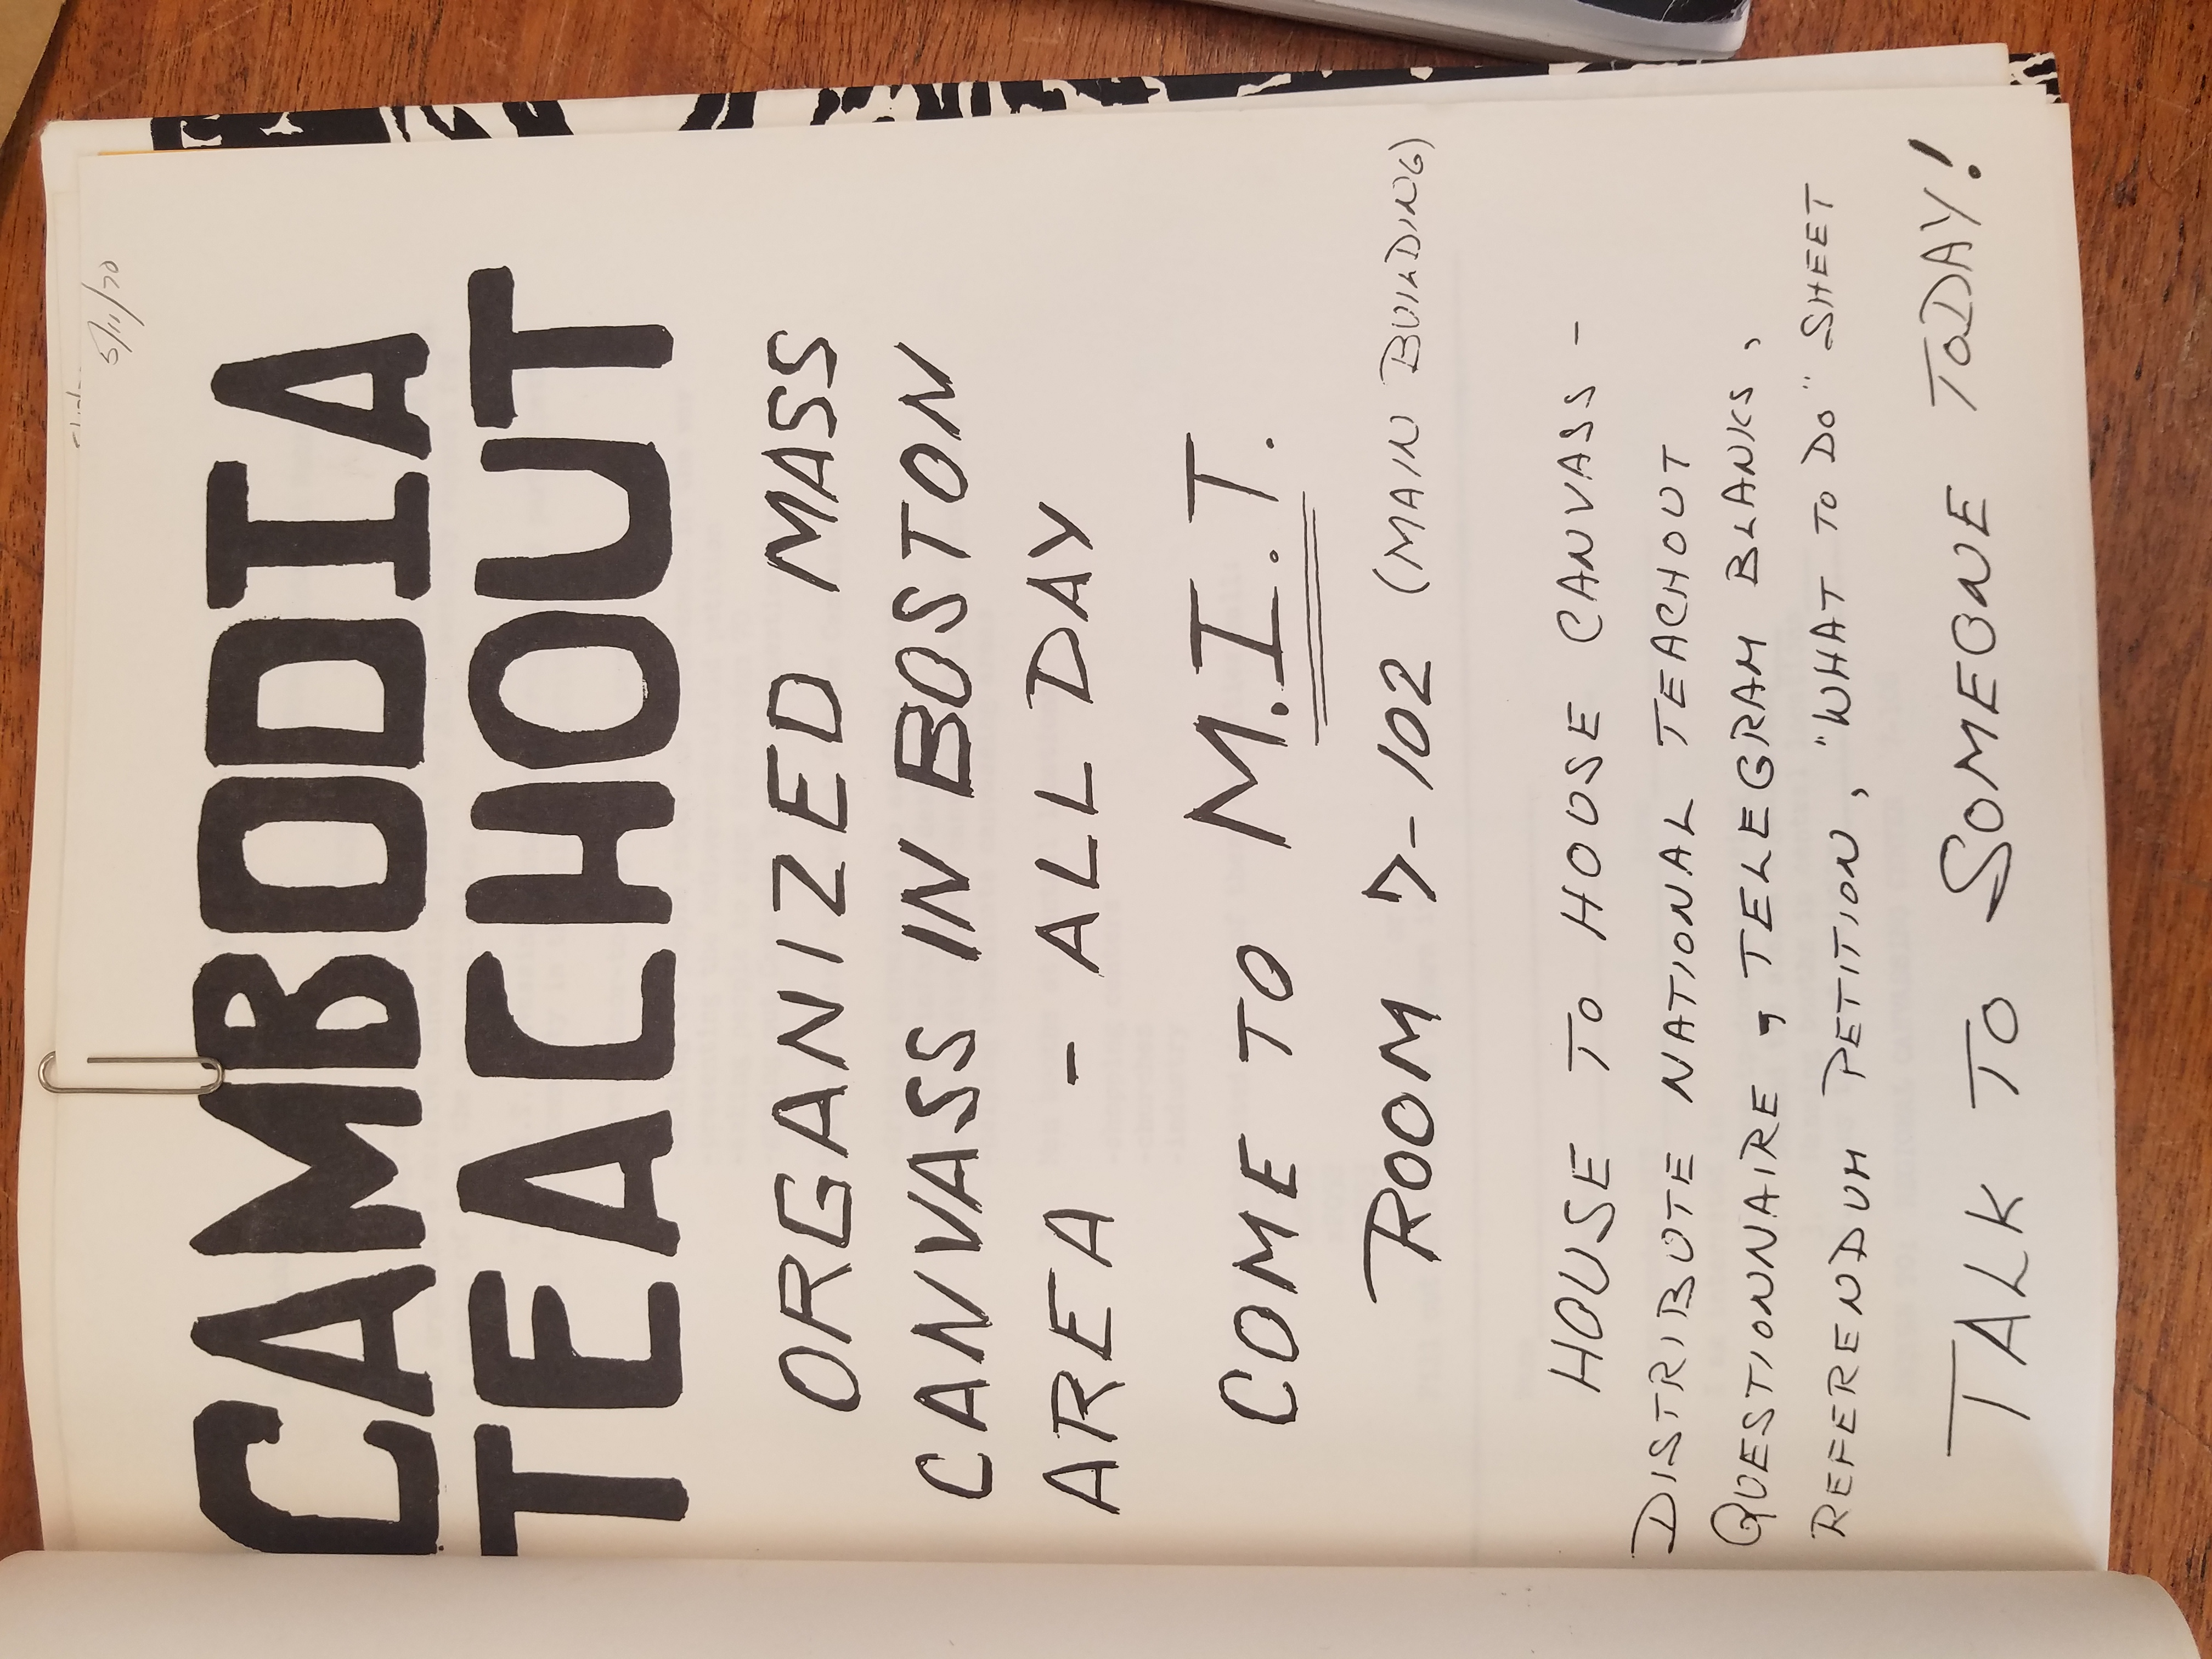 5/11/70
CAMBODIA
TEACHOUT
ORGANIZED MASS
CANVASS IN BOSTON
AREA - ALL DAY
COME TO M.I.T.
ROOM 7-102 (MAIN BUILDING)
HOUSE TO HOUSE CANVASS -
DISTRIBUTE NATIONAL TEACHOUT
QUESTIONNAIRE, TELEGRAM BLANKS,
REFERENDUM PETITION, "WHAT TO DO" SHEET
TALK TO SOMEONE TODAY!